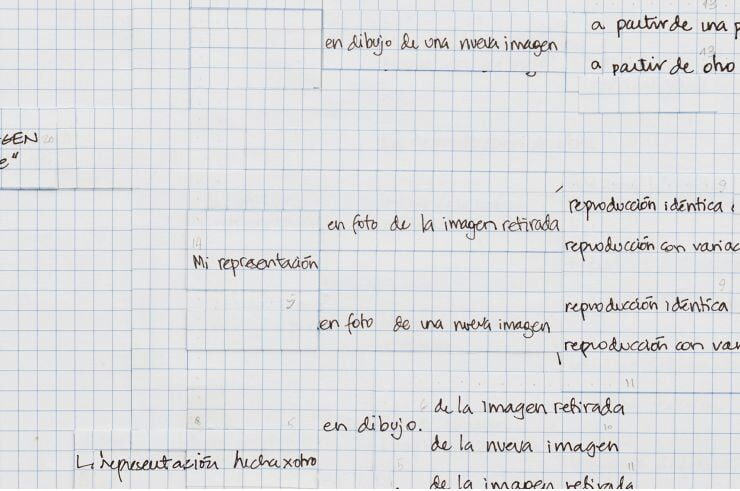 a partir de una p
en dibujo de una nueva imagen
a partir de otro
GEN
e"
reproducción idéntica
en foto de la imagen retirada
reproducción con variac
Mi representación
reproducción idéntica
en foto de una nueva imagen
reproducción con var
de la imagen retirada
en dibujo.
de la nueva imagen
representación hecha x otro
de la imagen retirada